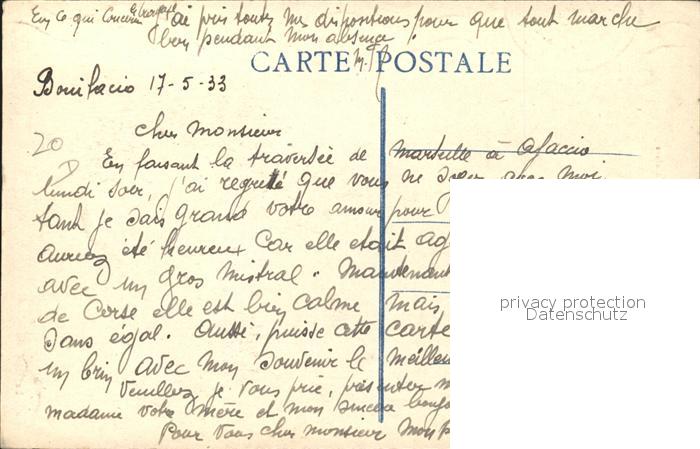 En ce qui concerne j'ai pris toutes mes dispositions pour que tout marche
bien pendant mon absence.
CARTE POSTALE
Bonifacio 17-5-33
20
Cher Monsieur
En faisant la traversée de Marseille à Ajaccio
lundi soir, j'ai regretté que vous ne avec moi
tant je sais grand votre amour pour
auriez été heureux car elle etait ag
avec un gros mistral. Maintenant
de Corse elle est bien calme, mais
sans égal. Aussi, puisse cette carte
un brin avec mon souvenir le meilleu
Veuillez je vous prie, présenter m
madame votre mère et mon sincère
Pour vous cher monsieur mon
privacy protection
Datenschutz